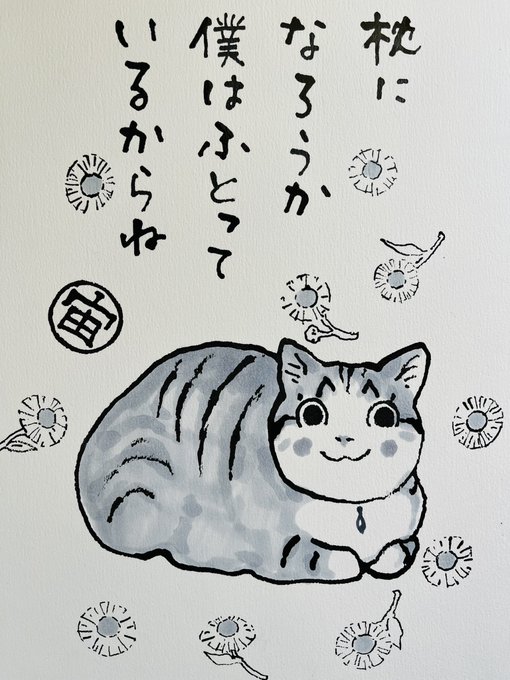 枕に
なろうか
僕はふとって
いるからね
宙